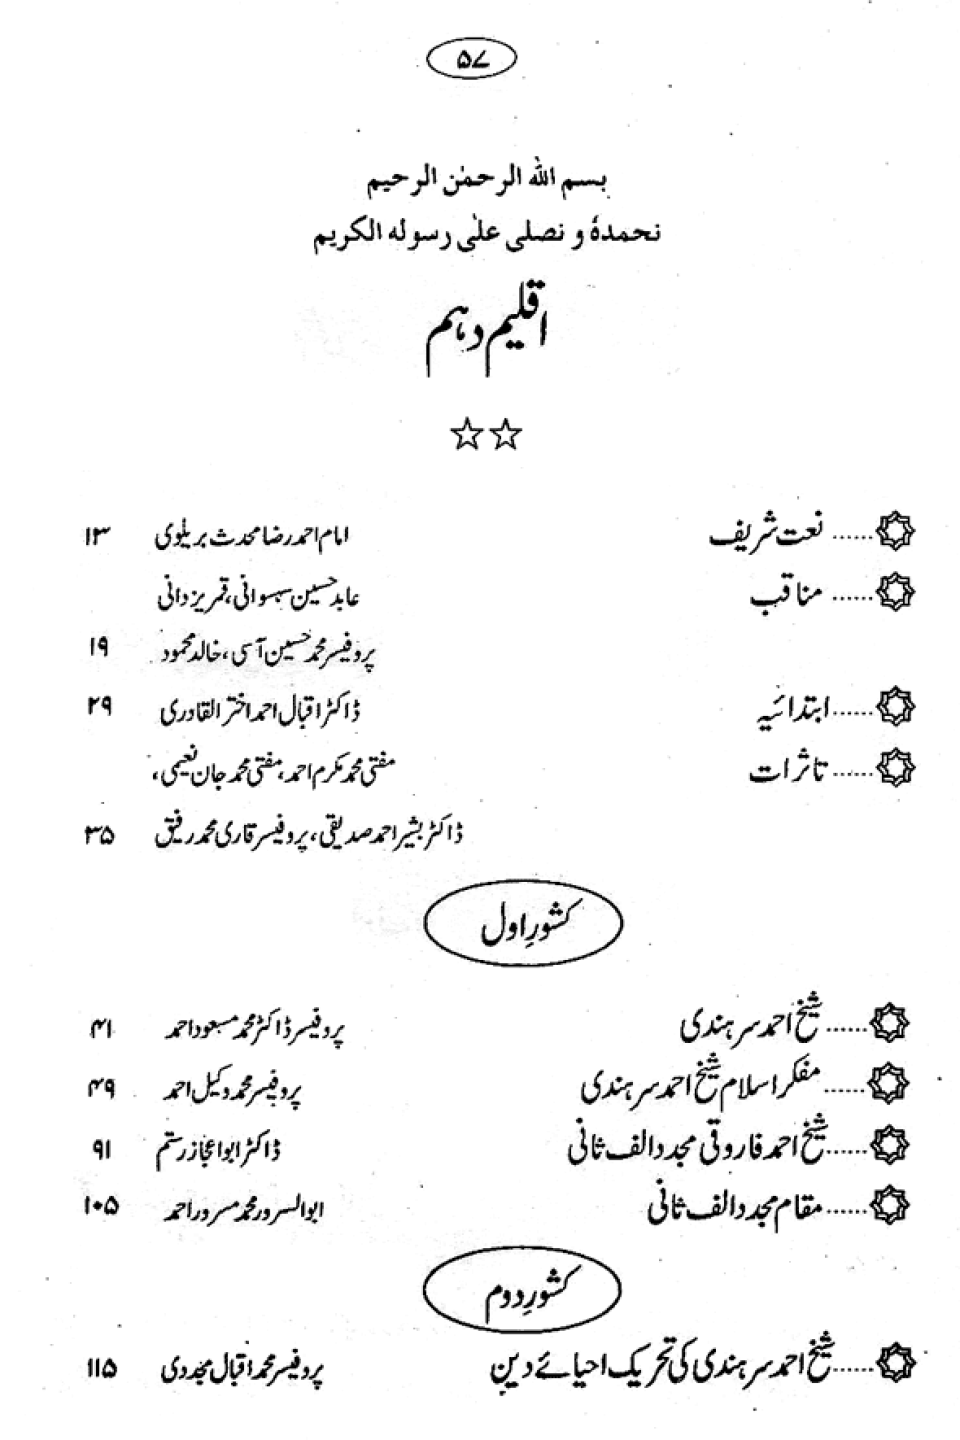 ۵۷
بسم الله الرحمٰن الرحیم
نحمدهٗ و نصلی علٰی رسوله الکریم
اقلیم دہم
☆☆
...... نعت شریف امام احمد رضا محدث بریلوی ۱۳
...... مناقب عابد حسین سہسوانی، قمر یزدانی
پروفیسر محمد حسین آسی، خالد محمود ۱۹
...... ابتدائیہ ڈاکٹر اقبال احمد اختر القادری ۲۹
...... تاثرات مفتی محمد مکرم احمد، مفتی محمد جان نعیمی،
ڈاکٹر بشیر احمد صدیقی، پروفیسر قاری محمد رفیق ۳۵
کشورِ اول
...... شیخ احمد سرہندی پروفیسر ڈاکٹر محمد مسعود احمد ۴۱
...... مفکر اسلام شیخ احمد سرہندی پروفیسر محمد وکیل احمد ۴۹
...... شیخ احمد فاروقی مجدد الف ثانی ڈاکٹر ابو اعجاز رستم ۹۱
...... مقام مجدد الف ثانی ابوالسرور محمد مسرور احمد ۱۰۵
کشورِ دوم
...... شیخ احمد سرہندی کی تحریک احیائے دین پروفیسر محمد اقبال مجددی ۱۱۵